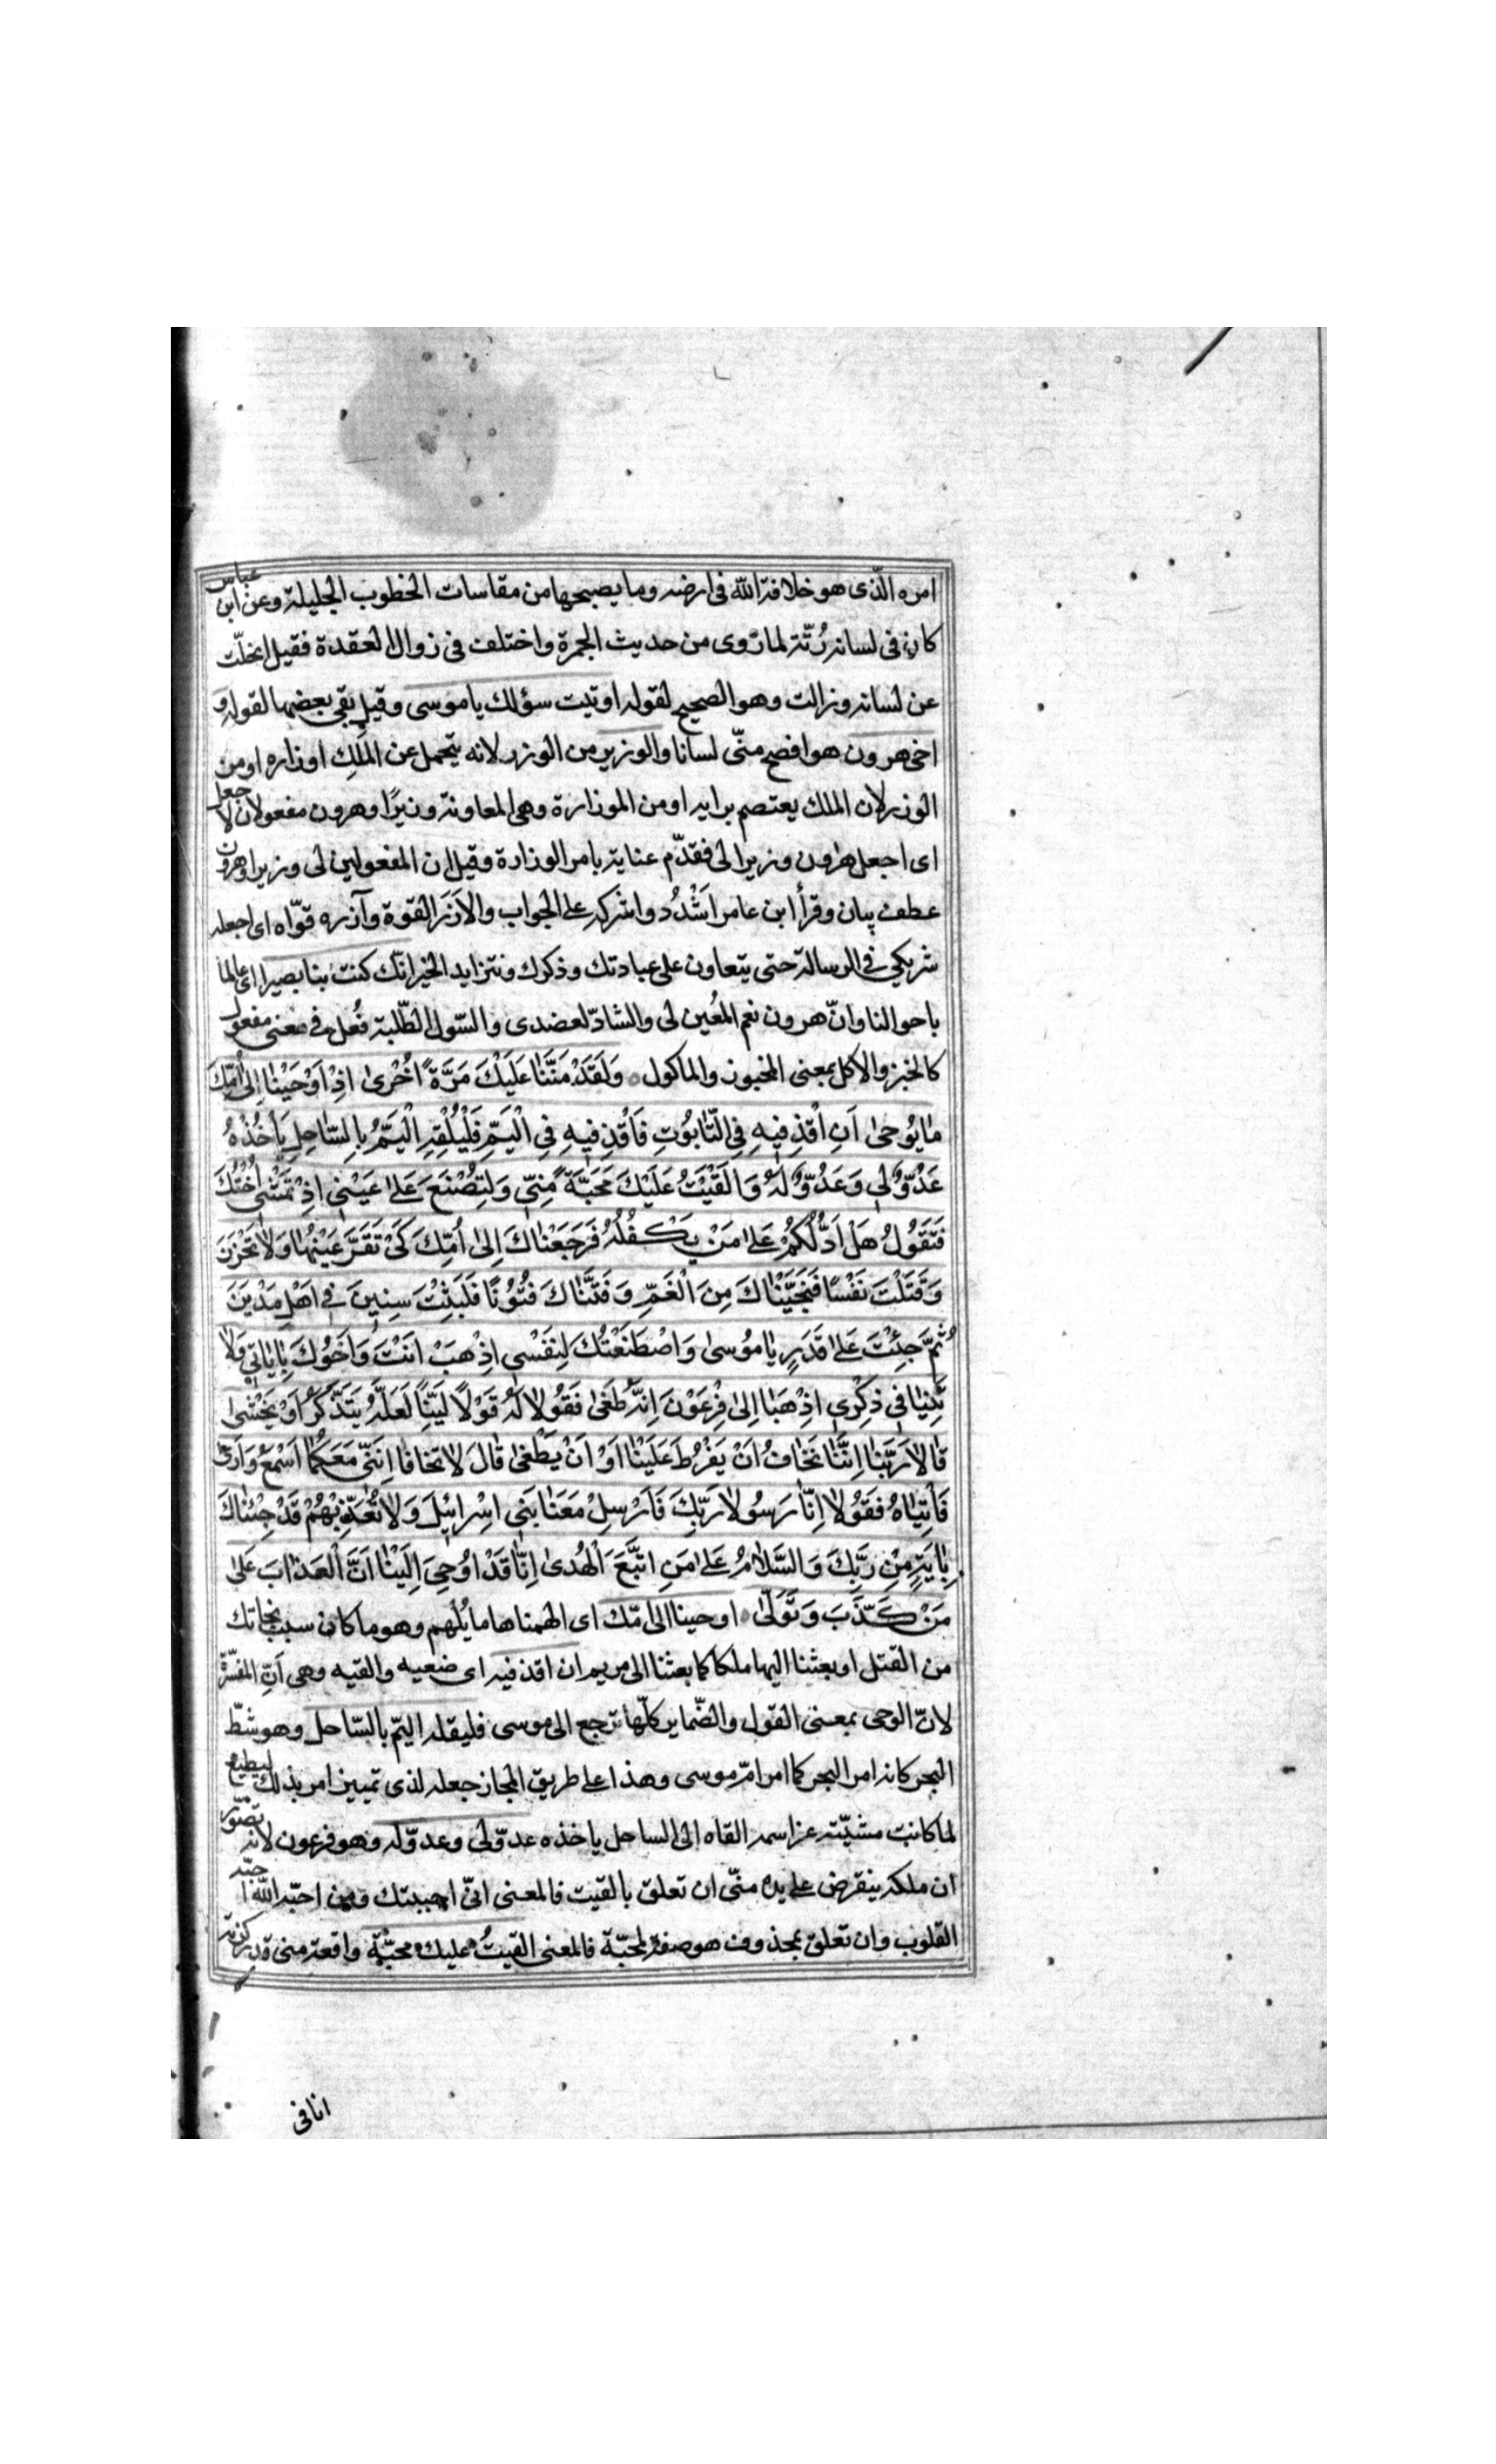 امره الّذی هو خلافة الله فی ارضه وما یصبحها من مقاسات الخطوب الجلیلة وعن ابن عباس
کان فی لسانه رُتّة لما رَوی من حدیث الجمرة واختلف فی زوال العقدة فقیل انحلّت
عن لسانه وزالت وهو الصحیح لقوله اوتیت سؤلك یا موسی وقیل بقی بعضها لقوله و
اخی هرون هو افصح منّی لسانا والوزیر من الوزر لانه یتحمل عن المَلِك اوزاره او من
الوزر لان الملك یعتصم برایه او من الموزارة وهی المعاونة وزیرًا وهرون مفعولان لا جعل
ای اجعل هٰرون وزیرا لی فقدّم عنایة بامر الوزارة وقیل ان المفعولین لی وزیرا وهرون
عطف بیان وقرأ ابن عامر اَشْدُد واشرکه علی الجواب والاَزَر القوة وآزره قوّاه ای اجعله
شریکی فی الرسالة حتی یتعاون علی عبادتك وذکرك ونتزاید الخیر انّك کنت بنا بصیرا ای عالما
باحوالنا وانّ هرون نعم المُعین لی والشادّ لعضدی والسّول الطّلبة فُعل فی معنی مفعول
کالخبز والاکل بمعنی المخبوز والماکول ٥ وَلَقَدْ مَنَنّٰا عَلَیْكَ مَرَّةً اُخْرٰی اِذْ اَوْحَیْنٰا اِلٰی اُمِّكَ
مٰا یُوحٰی اَنِ اقْذِفِیهِ فِی التّٰابُوتِ فَاقْذِفِیهِ فِی الْیَمِّ فَلْیُلْقِهِ الْیَمُّ بِالسّٰاحِلِ یَأْخُذْهُ
عَدُوٌّ لِی وَعَدُوٌّ لَهُ وَاَلْقَیْتُ عَلَیْكَ مَحَبَّةً مِنّی وَلِتُصْنَعَ عَلٰی عَیْنی اِذْ تَمْشی اُخْتُكَ
فَتَقُولُ هَلْ اَدُلُّکُمْ عَلٰی مَنْ یَکْفُلُهُ فَرَجَعْنٰاكَ اِلٰی اُمِّكَ کَیْ تَقَرَّ عَیْنُهٰا وَلٰا تَحْزَنَ
وَقَتَلْتَ نَفْسًا فَنَجَّیْنٰاكَ مِنَ الْغَمِّ وَفَتَنّٰاكَ فُتُونًا فَلَبِثْتَ سِنِینَ فی اَهْلِ مَدْیَنَ
ثُمَّ جِئْتَ عَلٰی قَدَرٍ یٰا مُوسٰی وَاصْطَنَعْتُكَ لِنَفْسی اِذْهَبْ اَنْتَ وَاَخُوكَ بِاٰیٰاتی وَلٰا
تَنِیٰا فی ذِکْرِی اِذْهَبٰا اِلٰی فِرْعَوْنَ اِنَّهُ طَغٰی فَقُولٰا لَهُ قَوْلًا لَیِّنًا لَعَلَّهُ یَتَذَکَّرُ اَوْ یَخْشٰی
قٰالٰا رَبَّنٰا اِنَّنٰا نَخٰافُ اَنْ یَفْرُطَ عَلَیْنٰا اَوْ اَنْ یَطْغٰی قٰالَ لٰا تَخٰافٰا اِنَّنی مَعَکُمٰا اَسْمَعُ وَاَرٰی
فَأْتِیٰاهُ فَقُولٰا اِنّٰا رَسُولٰا رَبِّكَ فَاَرْسِلْ مَعَنٰا بَنی اِسْرٰائِیلَ وَلٰا تُعَذِّبْهُمْ قَدْ جِئْنٰاكَ
بِاٰیَةٍ مِنْ رَبِّكَ وَالسَّلٰامُ عَلٰی مَنِ اتَّبَعَ الْهُدٰی اِنّٰا قَدْ اُوحِیَ اِلَیْنٰا اَنَّ الْعَذٰابَ عَلٰی
مَنْ کَذَّبَ وَتَوَلّٰی ٥ اوحینا الی امّك ای الهمناها ما یُلهم وهو ما کان سبب نجاتك
من القتل او بعثنا الیها ملکا کما بعثنا الی مریم ان اقذفیه ای ضعیه والقیه وهی اَنِ المفسّرة
لانّ الوحی بمعنی القول والضّمایر کلّها ترجع الی موسی فلیقله الیمّ بالسّاحل وهو شطّ
البحر کانه امر البحر کما امر امّ موسی وهذا علی طریق المجاز جعله لذی تمییز امر بذلك لیطیع
لما کانت مشیّته عزاسمه القاه الی الساحل یاخذه عدوّ لی وعدوّ له وهو فرعون لانه تصوّر
ان ملکه ینقرض علی یده منّی ان تعلق بالقیت فالمعنی انّی احببتك ومن احبّه الله احبّته
القلوب وان تعلق بمحذوف هو صفة لمحبّة فالمعنی القیتُ علیك محبّة واقعة منی قد رکزته
انا فی